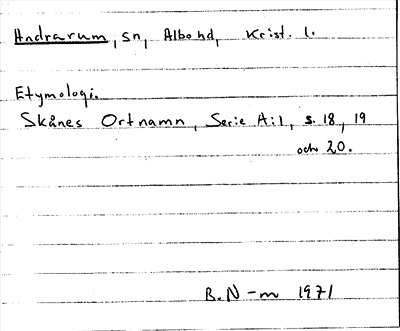 Andrarum, sn, Albo hd, Krist. l.
Etymologi.
Skånes Ortnamn, Serie A:1, s. 18, 19
och 20.
B. N-m 1971